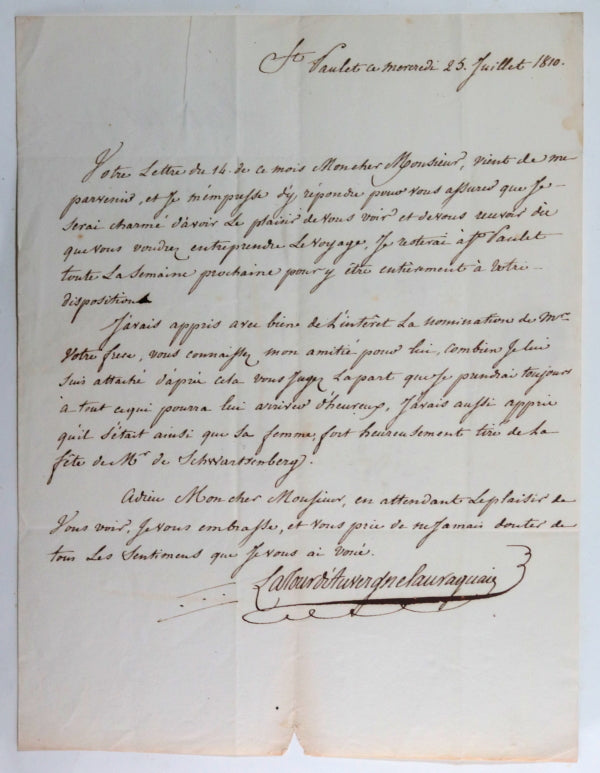 St Paulet ce mercredi 25. Juillet 1810.
Votre Lettre du 14. de ce mois Moncher Monsieur, vient de me
parvenir, et Je m'empresse d'y répondre pour vous assurer que Je
serai charmé d'avoir Le plaisir de vous voir et de vous recevoir dès
que vous voudrez entreprendre Le voyage, Je resterai à St Paulet
toute La Semaine prochaine pour y être entièrement à votre
disposition.
J'avais appris avec bien de L'intérêt La nomination de Mr
Votre frere, vous connaissez mon amitié pour lui, combien Je lui
suis attaché d'après cela vous Jugez Lapart que Je prendrai toujours
à tout cequi pourra lui arriver d'heureux, J'avais aussi appris
qu'il s'était ainsi que sa femme, fort heureusement tiré de La
fête de Mr de Schwartsenberg.
Adieu Moncher Monsieur, en attendant Le plaisir de
Vous voir, Je vous embrasse, et vous prie de ne Jamais douter de
tous Les Sentimens que Je vous ai voué.
LaTourd'Auvergnelauraguais